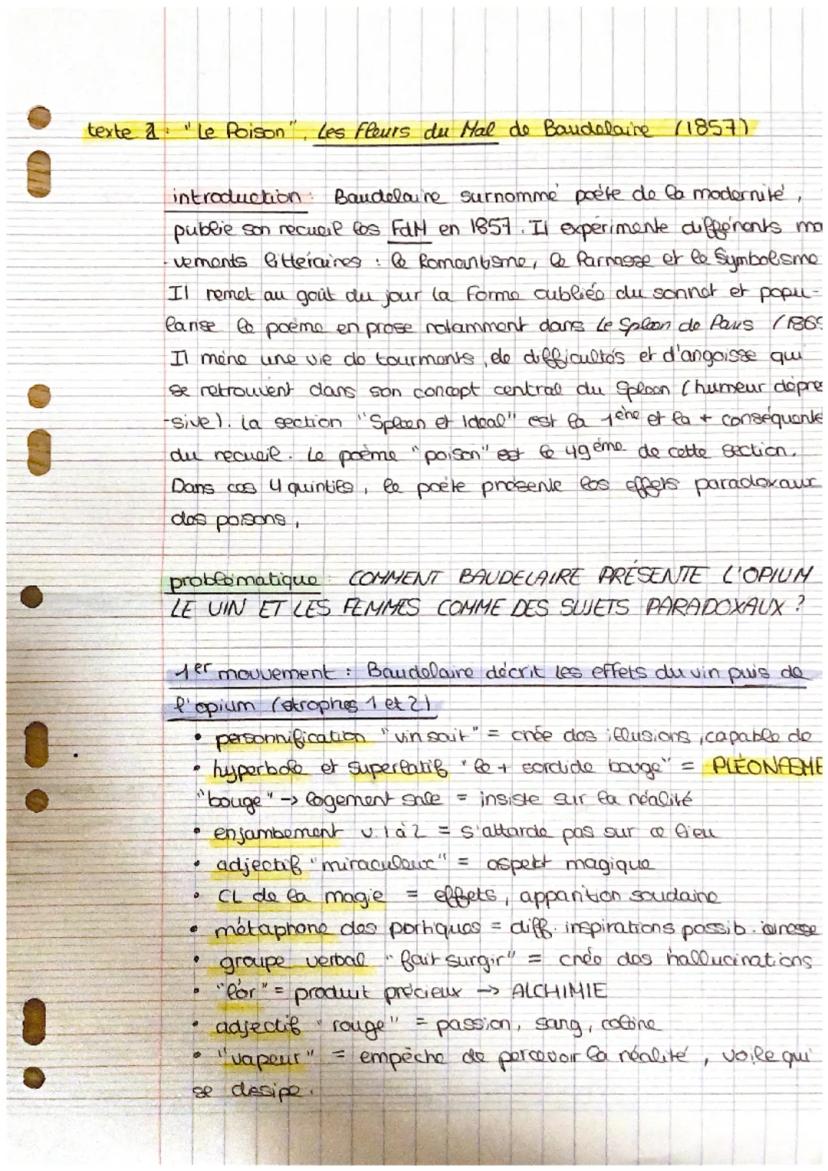 texte 2 : "Le Poison", Les Fleurs du Mal de Baudelaire (1857)
introduction : Baudelaire surnommé poète de la modernité,
publie son recueil les FdM en 1857. Il expérimente différents mo
-vements littéraires : le Romantisme, le Parnasse et le Symbolisme
Il remet au goût du jour la forme oubliée du sonnet et popu-
larise le poème en prose notamment dans Le Spleen de Paris (1869
Il mène une vie de tourments, de difficultés et d'angoisse qui
se retrouvent dans son concept central du Spleen (humeur dépre
-sive). La section "Spleen et Idéal" est la 1ère et la + conséquente
du recueil. Le poème "poison" est le 49ème de cette section.
Dans ces 4 quintils, le poète présente les effets paradoxaux
des poisons,
problématique : COMMENT BAUDELAIRE PRÉSENTE L'OPIUM
LE VIN ET LES FEMMES COMME DES SUJETS PARADOXAUX ?
1er mouvement : Baudelaire décrit les effets du vin puis de
l'opium (strophes 1 et 2)
• personnification "vin sait" = crée des illusions, capable de
• hyperbole et superlatif "le + sordide bouge" = PLÉONASME
"bouge" -> logement sale = insiste sur la réalité
• enjambement v.1 à 2 = s'attarde pas sur ce lieu
• adjectif "miraculeux" = aspekt magique
• CL de la magie = effets, apparition soudaine
• métaphore des portiques = diff. inspirations possib.
• groupe verbal "fait surgir" = crée des hallucinations
• "l'or" = produit précieux -> ALCHIMIE
• adjectif "rouge" = passion, sang, colère
• "vapeur" = empêche de percevoir la réalité, voile qui
se dissipe.